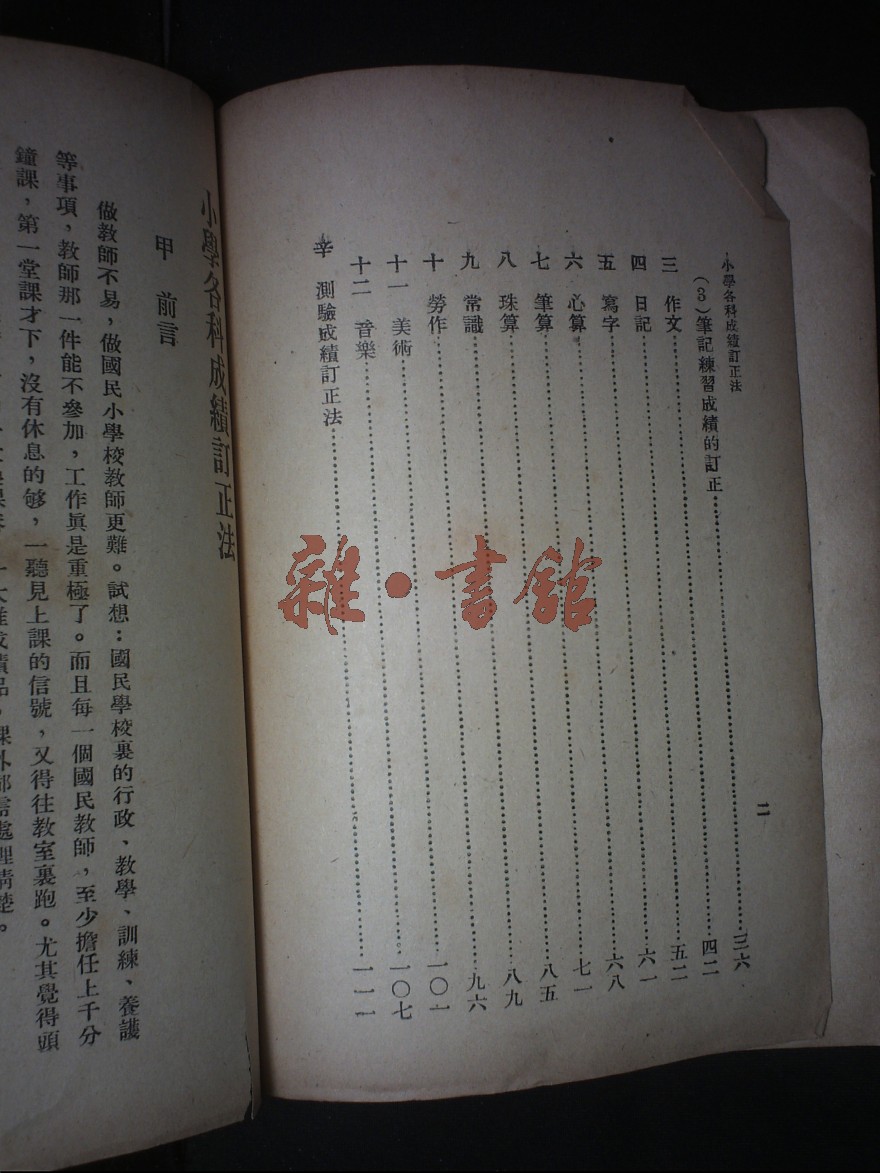 小學各科成績訂正法
二
（3）筆記練習成績的訂正……三六
三 作文……四二
四 日記……五二
五 寫字……六一
六 心算……六八
七 筆算……七一
八 珠算……八五
九 常識……八九
十 勞作……九六
十一 美術……一〇一
十二 音樂……一〇七
辛 測驗成績訂正法……一一一
雜·書館
小學各科成績訂正法
甲 前言
做教師不易，做國民小學校教師更難。試想：國民學校裏的行政、教學、訓練、養護
等事項，教師那一件能不參加，工作眞是重極了。而且每一個國民教師，至少擔任上千分
鐘課，第一堂課才下，沒有休息的够，一聽見上課的信號，又得往教室裏跑。尤其覺得頭